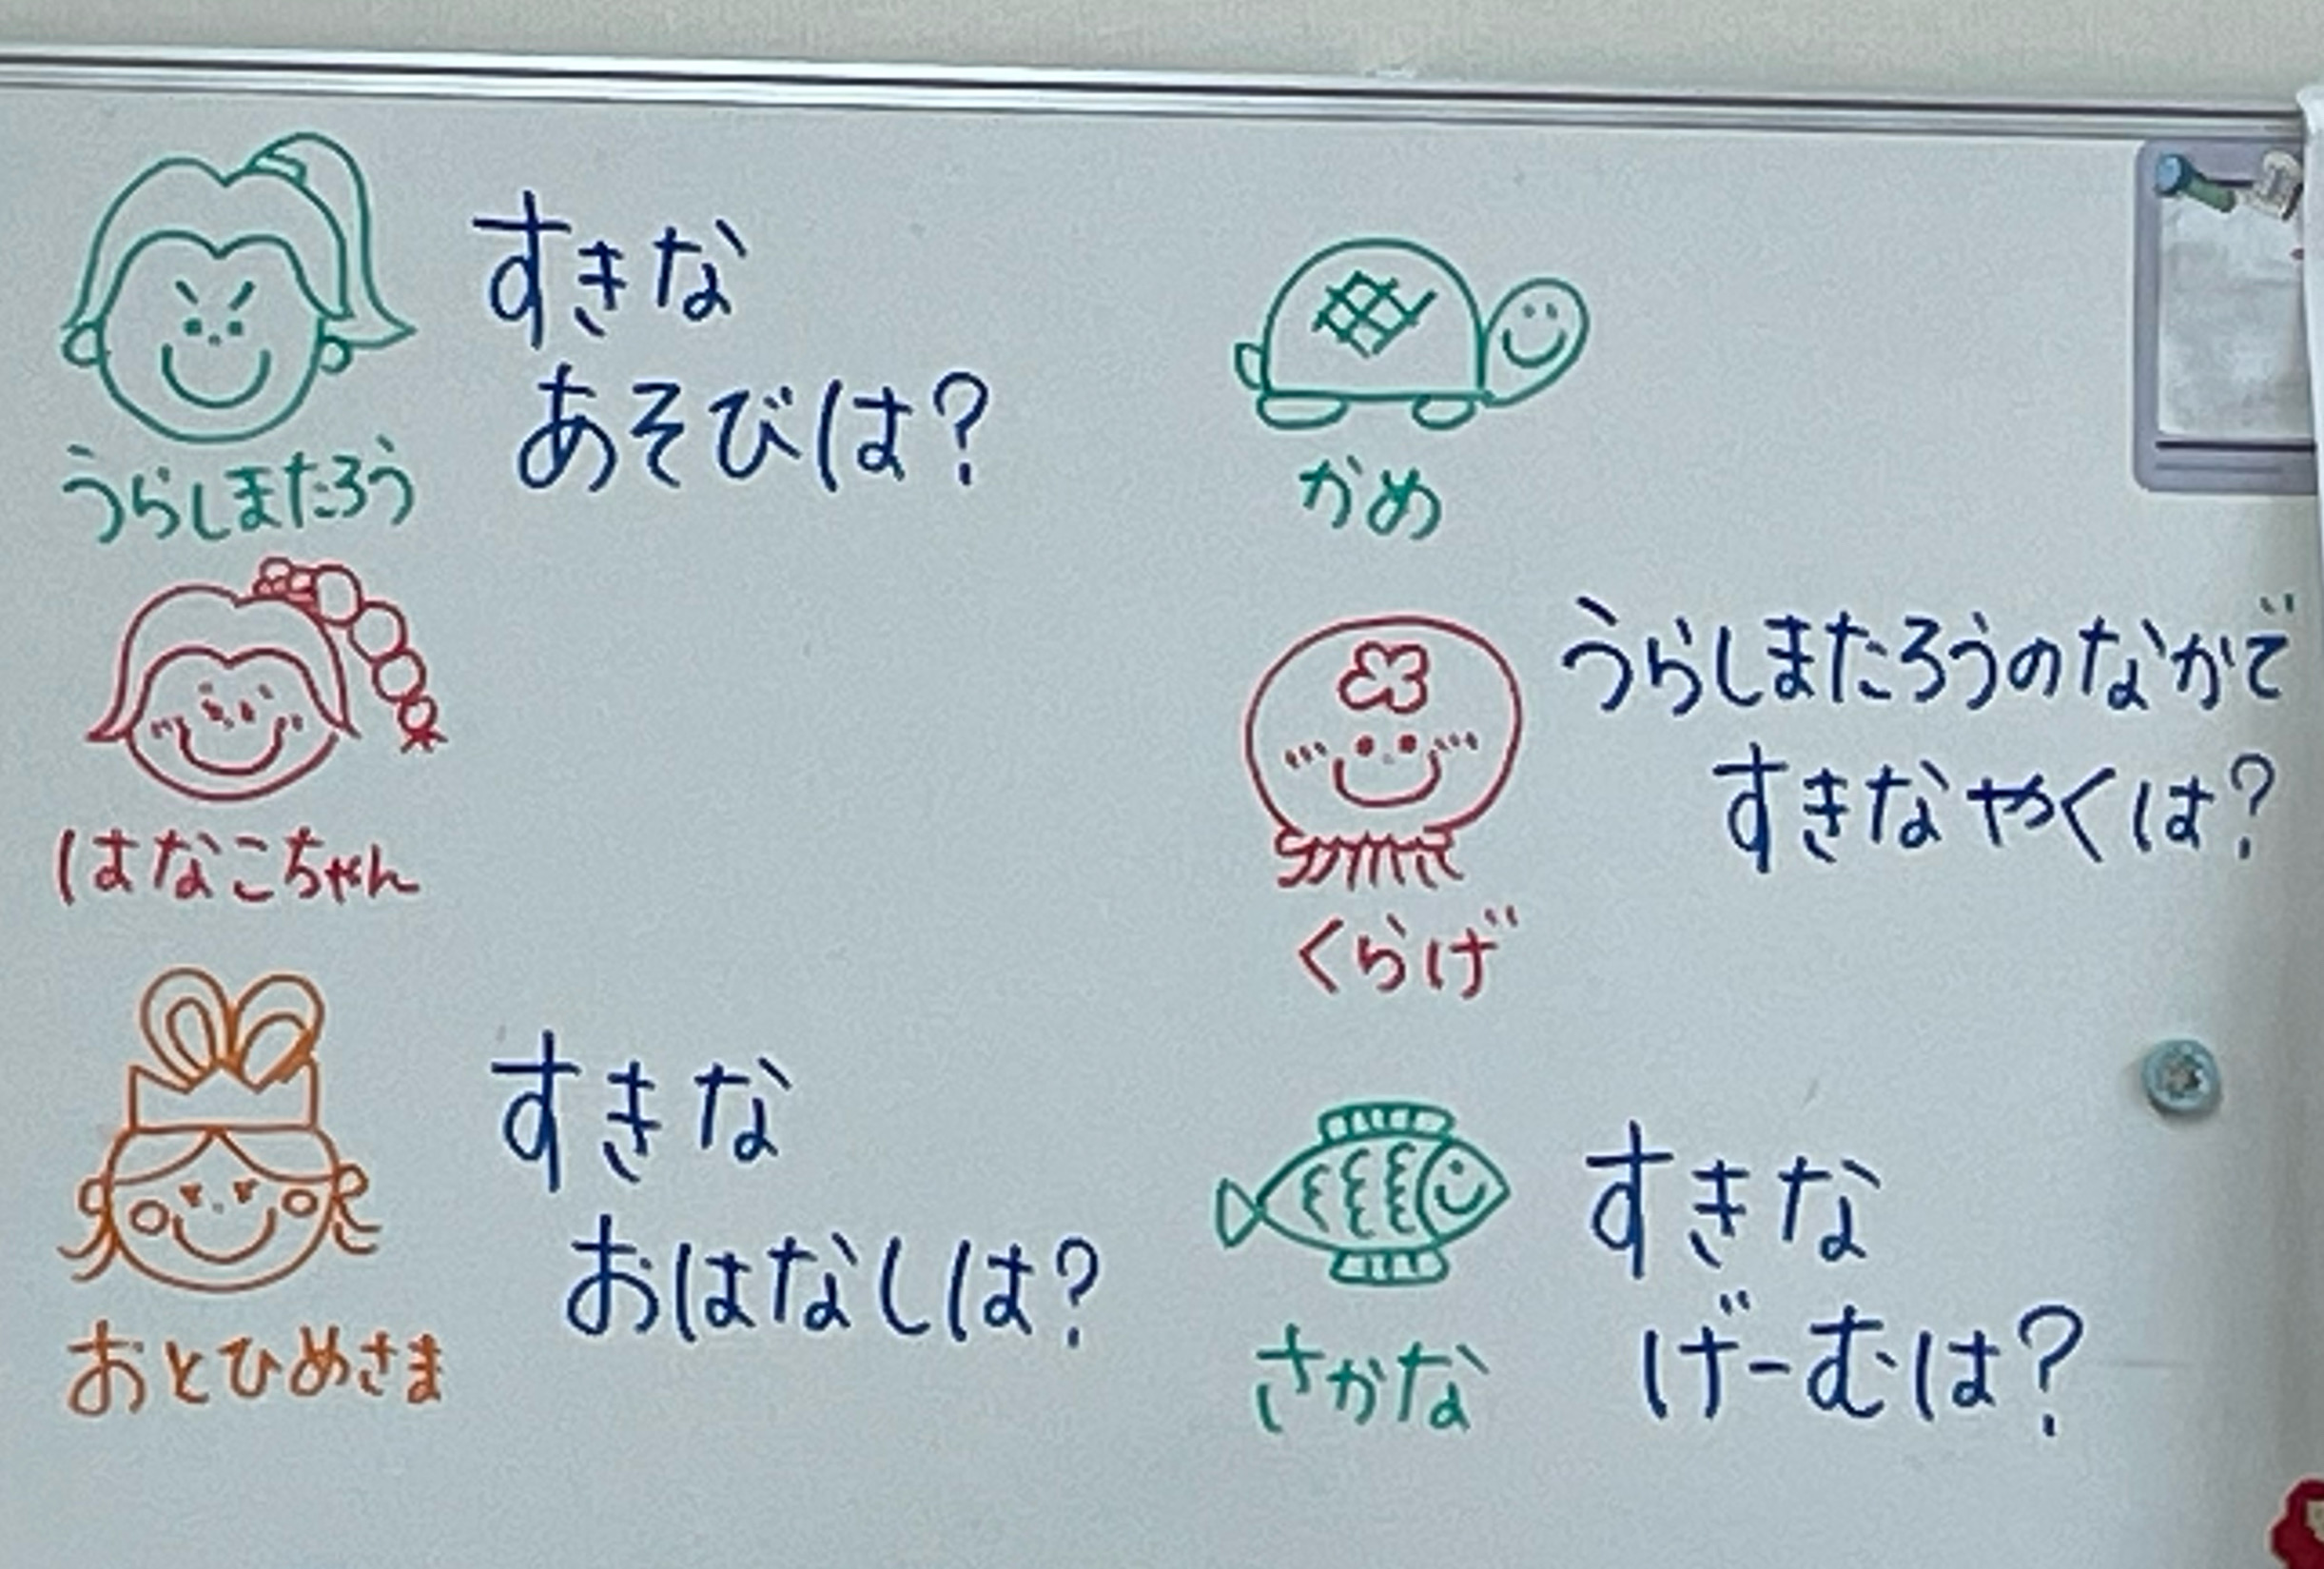 すきな
あそびは?
うらしまたろう
はなこちゃん
すきな
おはなしは?
おとひめさま
かめ
うらしまたろうのなかで
すきなやくは?
くらげ
すきな
げーむは?
さかな